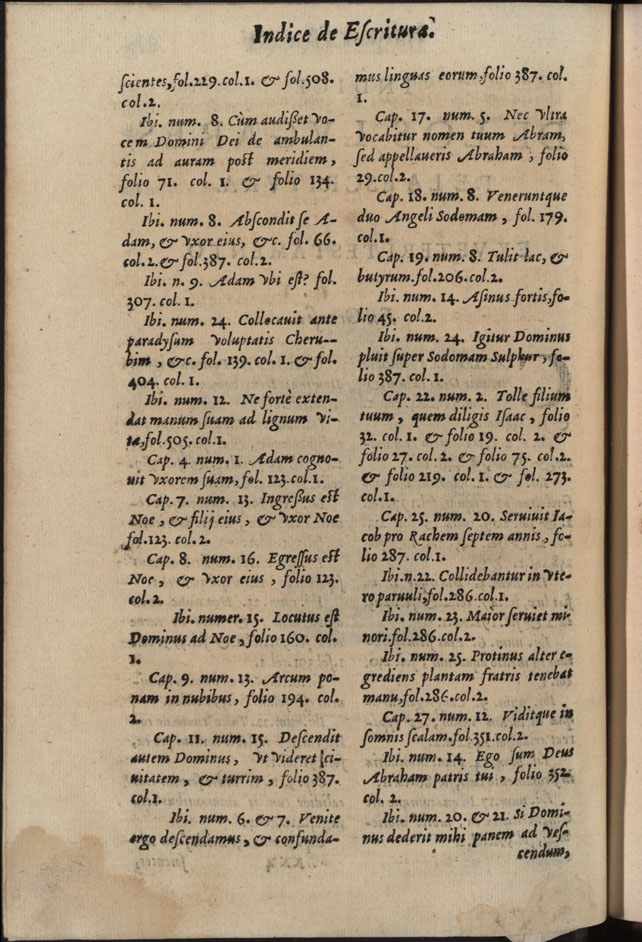 Indice de Eſcritura.
ſcientes, fol.229.col.1. & fol.508.
col.2.
Ibi. num. 8. Cùm audißet vo-
cem Domini Dei de ambulan-
tis ad auram post meridiem,
folio 71. col. 1. & folio 134.
col. 1.
Ibi. num. 8. Abſcondit ſe A-
dam, & vxor eius, &c. fol. 66.
col.2.& fol.387. col.2.
Ibi. n. 9. Adam vbi est? fol.
307. col.1.
Ibi. num. 24. Collocauit ante
paradyſum voluptatis Cheru--
bim, &c. fol. 139. col.1. & fol.
404. col.1.
Ibi. num. 12. Ne fortè exten-
dat manum ſuam ad lignum vi-
tæ, fol.505. col.1.
Cap. 4. num. 1. Adam cogno-
uit vxorem ſuam, fol. 123.col.1.
Cap. 7. num. 13. Ingreßus est
Noe, & filij eius, & vxor Noe
fol.123. col.2.
Cap. 8. num. 16. Egreſſus est
Noe, & vxor eius, folio 123.
col.2.
Ibi. numer. 15. Locutus est
Dominus ad Noe, folio 160. col.
1.
Cap. 9. num. 13. Arcum po-
nam in nubibus, folio 194. col.
2.
Cap. 11. num. 15. Deſcendit
autem Dominus, vt videret ci-
uitatem, & turrim, folio 387.
col.1.
Ibi. num. 6. & 7. Venite
ergo deſcendamus, & confunda-
mus linguas eorum, folio 387. col.
1.
Cap. 17. num. 5. Nec vltra
vocabitur nomen tuum Abram,
ſed appellaueris Abraham, folio
29.col.2.
Cap. 18. num. 8. Veneruntque
duo Angeli Sodomam, fol. 179.
col.1.
Cap. 19. num. 8. Tulit lac, &
butyrum.fol.206.col.2.
Ibi. num. 14. Aſinus fortis, fo-
lio 45. col.2.
Ibi. num. 24. Igitur Dominus
pluit ſuper Sodomam Sulphur, fo-
lio 387. col.1.
Cap. 22. num. 2. Tolle filium
tuum, quem diligis Iſaac, folio
32. col. 1. & folio 19. col. 2. &
folio 27. col.2. & folio 75. col.2.
& folio 219. col.1. & fol. 273.
col.1.
Cap. 25. num. 20. Seruiuit Ia-
cob pro Rachem ſeptem annis, fo-
lio 287. col.1.
Ibi.n.22. Collidebantur in vte-
ro paruuli, fol.286.col.1.
Ibi. num. 23. Maior ſeruiet mi-
nori.fol.286.col.2.
Ibi. num. 25. Protinus alter e-
grediens plantam fratris tenebat
manu, fol.286.col.2.
Cap. 27. num. 12. Viditque in
ſomnis ſcalam.fol.351.col.2.
Ibi. num. 14. Ego ſum Deus
Abraham patris tui, folio 352.
col. 2.
Ibi. num. 20. & 21. Si Domi-
nus dederit mihi panem ad veſ-
cendum,